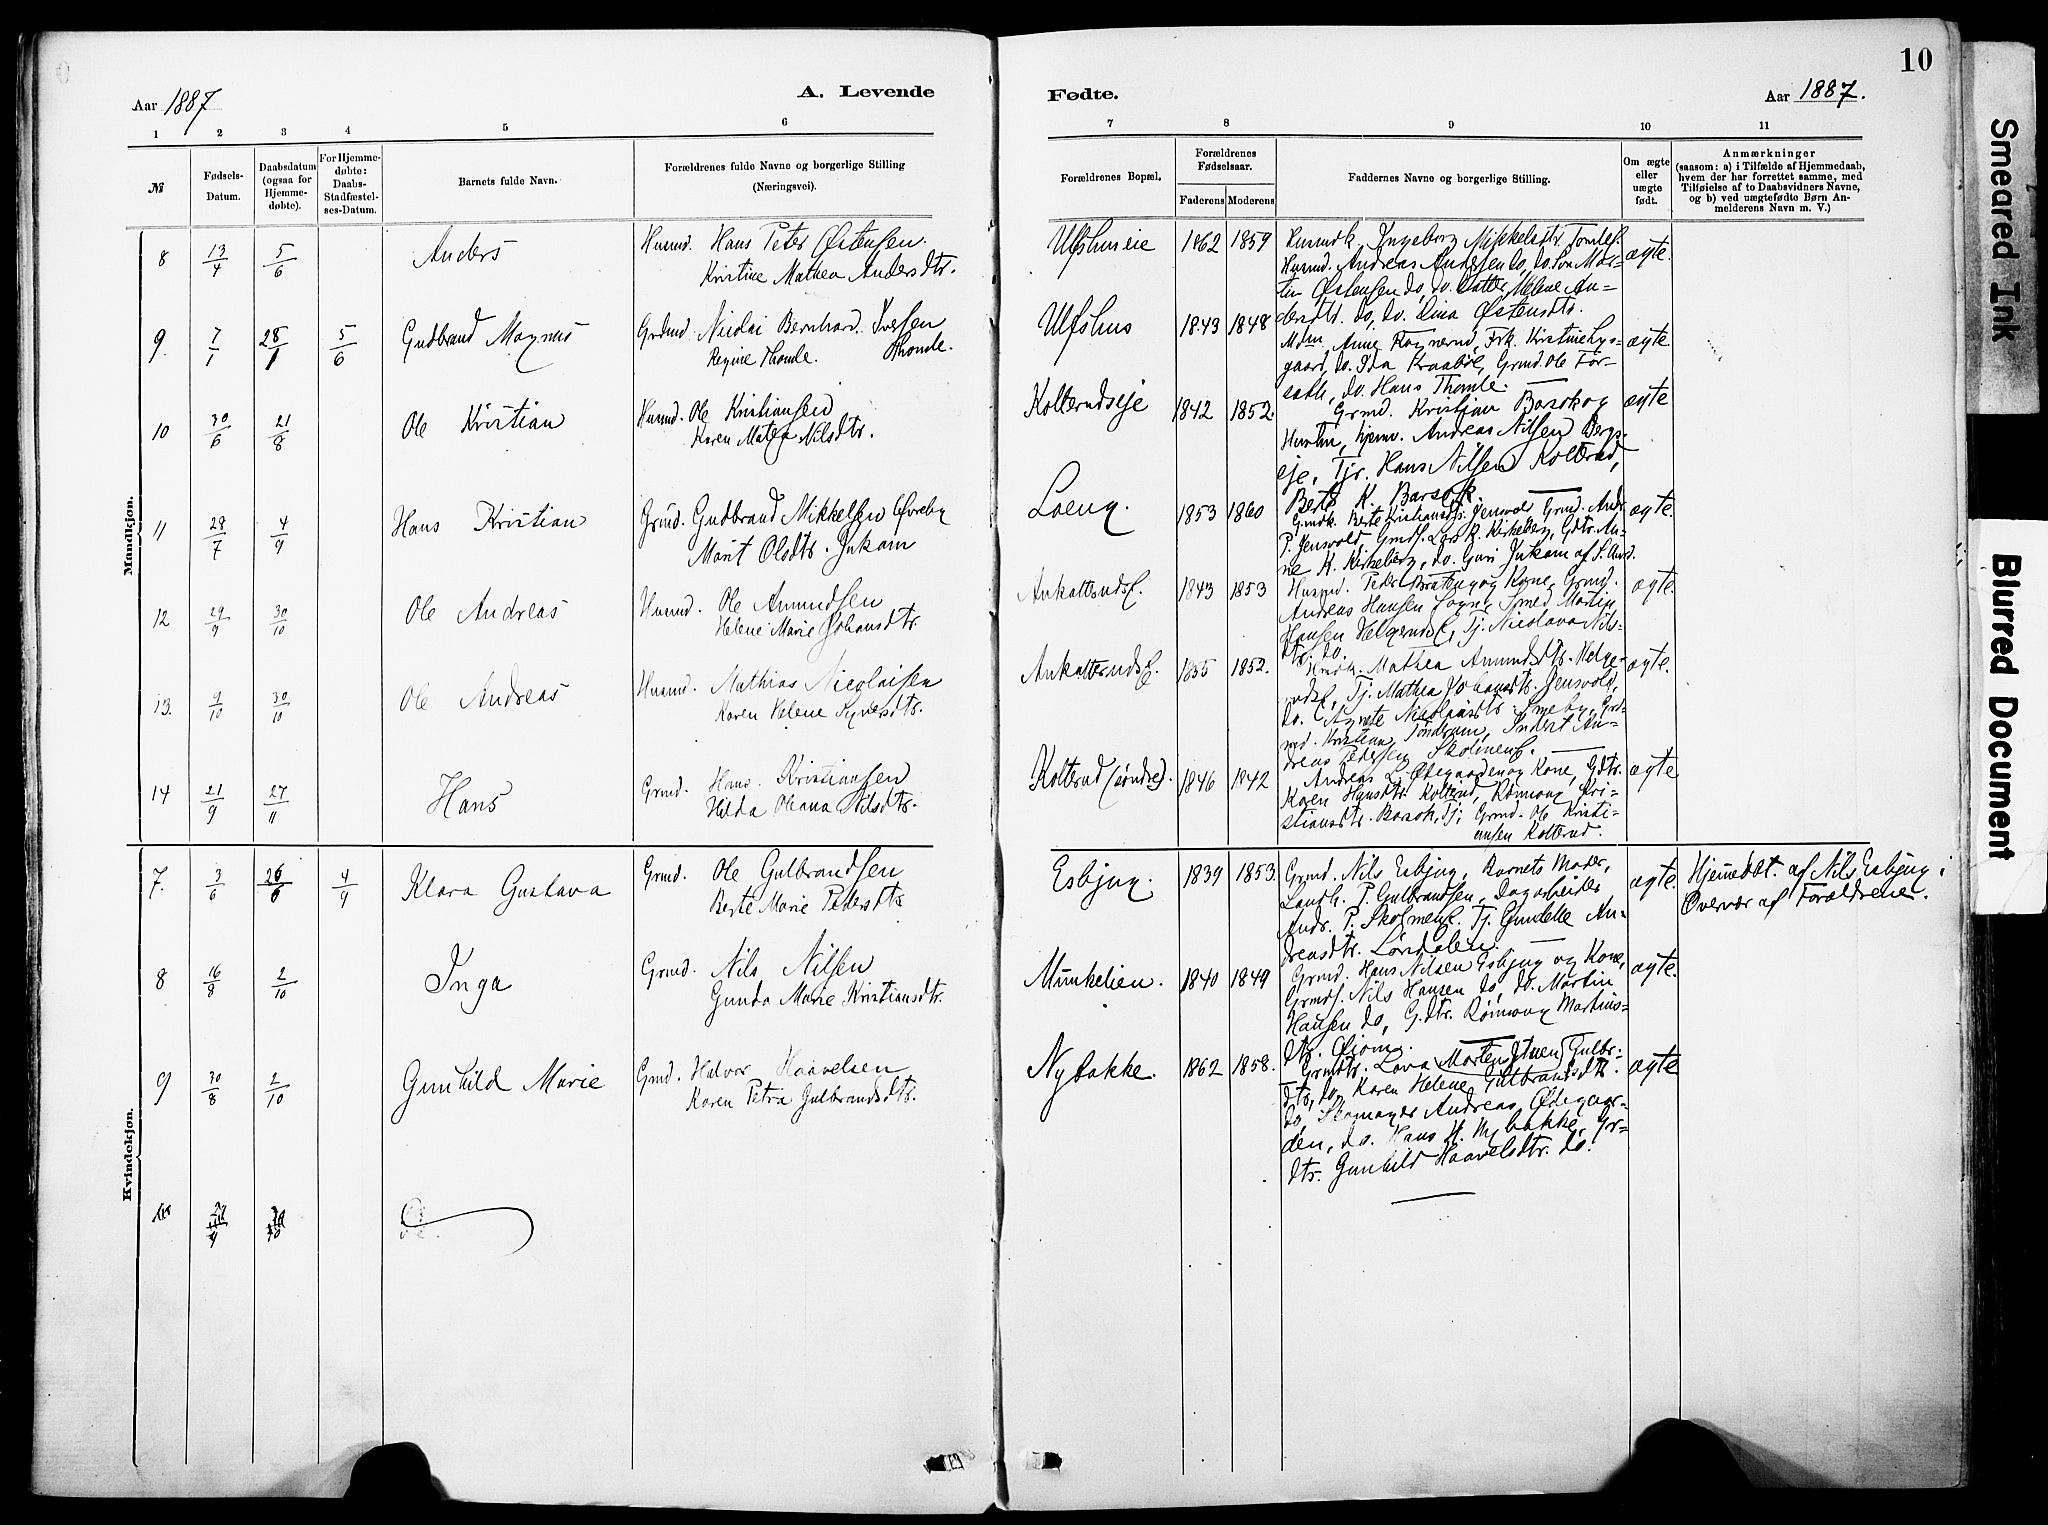 10
Aar 1887
A. Levende
Fødte.
Aar 1887.
1 2 3 4 5 6 7 8 9 10 11
№
Fødsels-
Datum.
Daabsdatum
(ogsaa for
Hjemme-
døbte).
For Hjemme-
døbte:
Daabs-
Stadfæstel-
ses-Datum.
Barnets fulde Navn.
Forældrenes fulde Navne og borgerlige Stilling
(Næringsvei).
Forældrenes Bopæl.
Forældrenes
Fødselsaar.
Faderens Moderens
Faddernes Navne og borgerlige Stilling.
Om ægte
eller
uægte
født.
Anmærkninger
(saasom: a) i Tilfælde af Hjemmedaab,
hvem der har forrettet samme, med
Tilføielse af to Daabsvidners Navne,
og b) ved uægtefødte Børn An-
melderens Navn m. V.)
Mandkjøn.
8 13/4 5/6 Anders
Husmd. Hans Peter Østensen.
Kristine Mathea Andersdtr.
Ulfshuseie 1862 1859
Husmdk. Ingeborg Mikkelsdtr.
Husmd. Andreas Andersen do, do. Søn Mar-
tin Østensen do, do. Datter Helene An-
dersdtr. do, do. Dina Østensdtr.
ægte.
9. 7/1 28/1 5/6 Gudbrand Magnus
Grdmd. Nicolai Bernhard Iversen
Thomle.
Regine Thomle.
Ulfshus 1843 1848
Mdm. Anne Fagnerud, Frk. Kristine Lys-
gaard, do. Ida Kraabøl, Grmd. Ole For-
seth, do. Hans Thomle.
ægte
10 30/6 21/8 Ole Kristian
Husmd. Ole Kristiansen
Karen Matea Nilsdtr.
Kolterudseje 1842 1852.
Grmd. Kristian Barsok og
Hustru, Andreas Nilsen Bergs-
eje, Tjr. Hans Nilsen Kolterud,
Berte K. Barsok.
ægte
11 28/7 4/9 Hans Kristian
Grmd. Gudbrand Mikkelsen Øvreby
Marit Olsdtr. Jukam
Loeng. 1853 1860
Gmdk. Berte Kristiansdtr. Jensvold, Grmd. Andr.
P. Jensvold, Gmds. Lars K. Kirkeberg, Gdtr. An-
ne K. Kirkeberg, do. Guri Jukam af S. Aurd.
ægte.
12 29/9 30/10 Ole Andreas
Husmd. Ole Amundsen
Helene Marie Johansdtr.
1843 1853
Husmd. Peder Braateng og Kone, Grmd.
Andreas Hansen Smed Martin
Hansen Tj. Nicolava Nils-
dtr. do.
ægte.
13. 9/10 30/10 Ole Andreas
Husmd. Mathias Nicolaisen
Karen Helene Syversdtr.
1855 1852.
Hmdk. Mathea Amundsdtr. Helge-
Tj. Mathea Johansdtr. Jensvold,
do. Agnete Nicolaisdtr. Smeby, Grd-
md. Kristian Inderst An-
dreas Pedersen
ægte.
14 21/9 27/11 Hans
Grmd. Hans Kristiansen
Hilda Oliana Nilsdtr.
Kolterud (søndre). 1846 1842
Andreas L. Ødegaarden og Kone, Gdtr.
Karen Hansdtr. Kolterud, Rønnaug Kri-
stiansdtr. Barsok, Tj. Grmd. Ole Kristi-
ansen Kolterud.
ægte
Kvindekjøn.
7. 3/6 26/6 4/9 Klara Gustava
Grmd. Ole Gulbrandsen
Berte Marie Pedersdtr.
Esbjug. 1839 1853.
Grmd. Nils Esbjug, Barnets Moder,
Landh. P. Gulbrandsen, Dagarbeider
Andr. P. Tj. Gundelle An-
dreasdtr. Lørdalen.
ægte.
Hjemmedøbt. af Nils Esbjug i
Overvær af Forældrene.
8 16/8 2/10 Inga
Grmd. Nils Nilsen
Gunda Marie Kristiansdtr.
Munkelien. 1840 1849
Grmd. Hans Nilsen Esbjug og Kone,
Grmds. Nils Hansen do, do. Martin
Hansen do, G.dtr. Rønnaug Martins-
dtr.
ægte.
9 30/8 2/10 Gunhild Marie
Gmd. Halvor Haavelsen
Karen Petra Gulbrandsdtr.
Nybakke. 1862 1858.
Grmdtr. Lova Gulbr.-
dtr, do, Karen Helene Gulbrandsdtr.
do, Skomager Andreas Ødegaar-
den, do. Hans H. Nybakke, Gr-
dtr. Gunhild Haavelsdtr. do.
ægte
Smeared Ink
Blurred Document